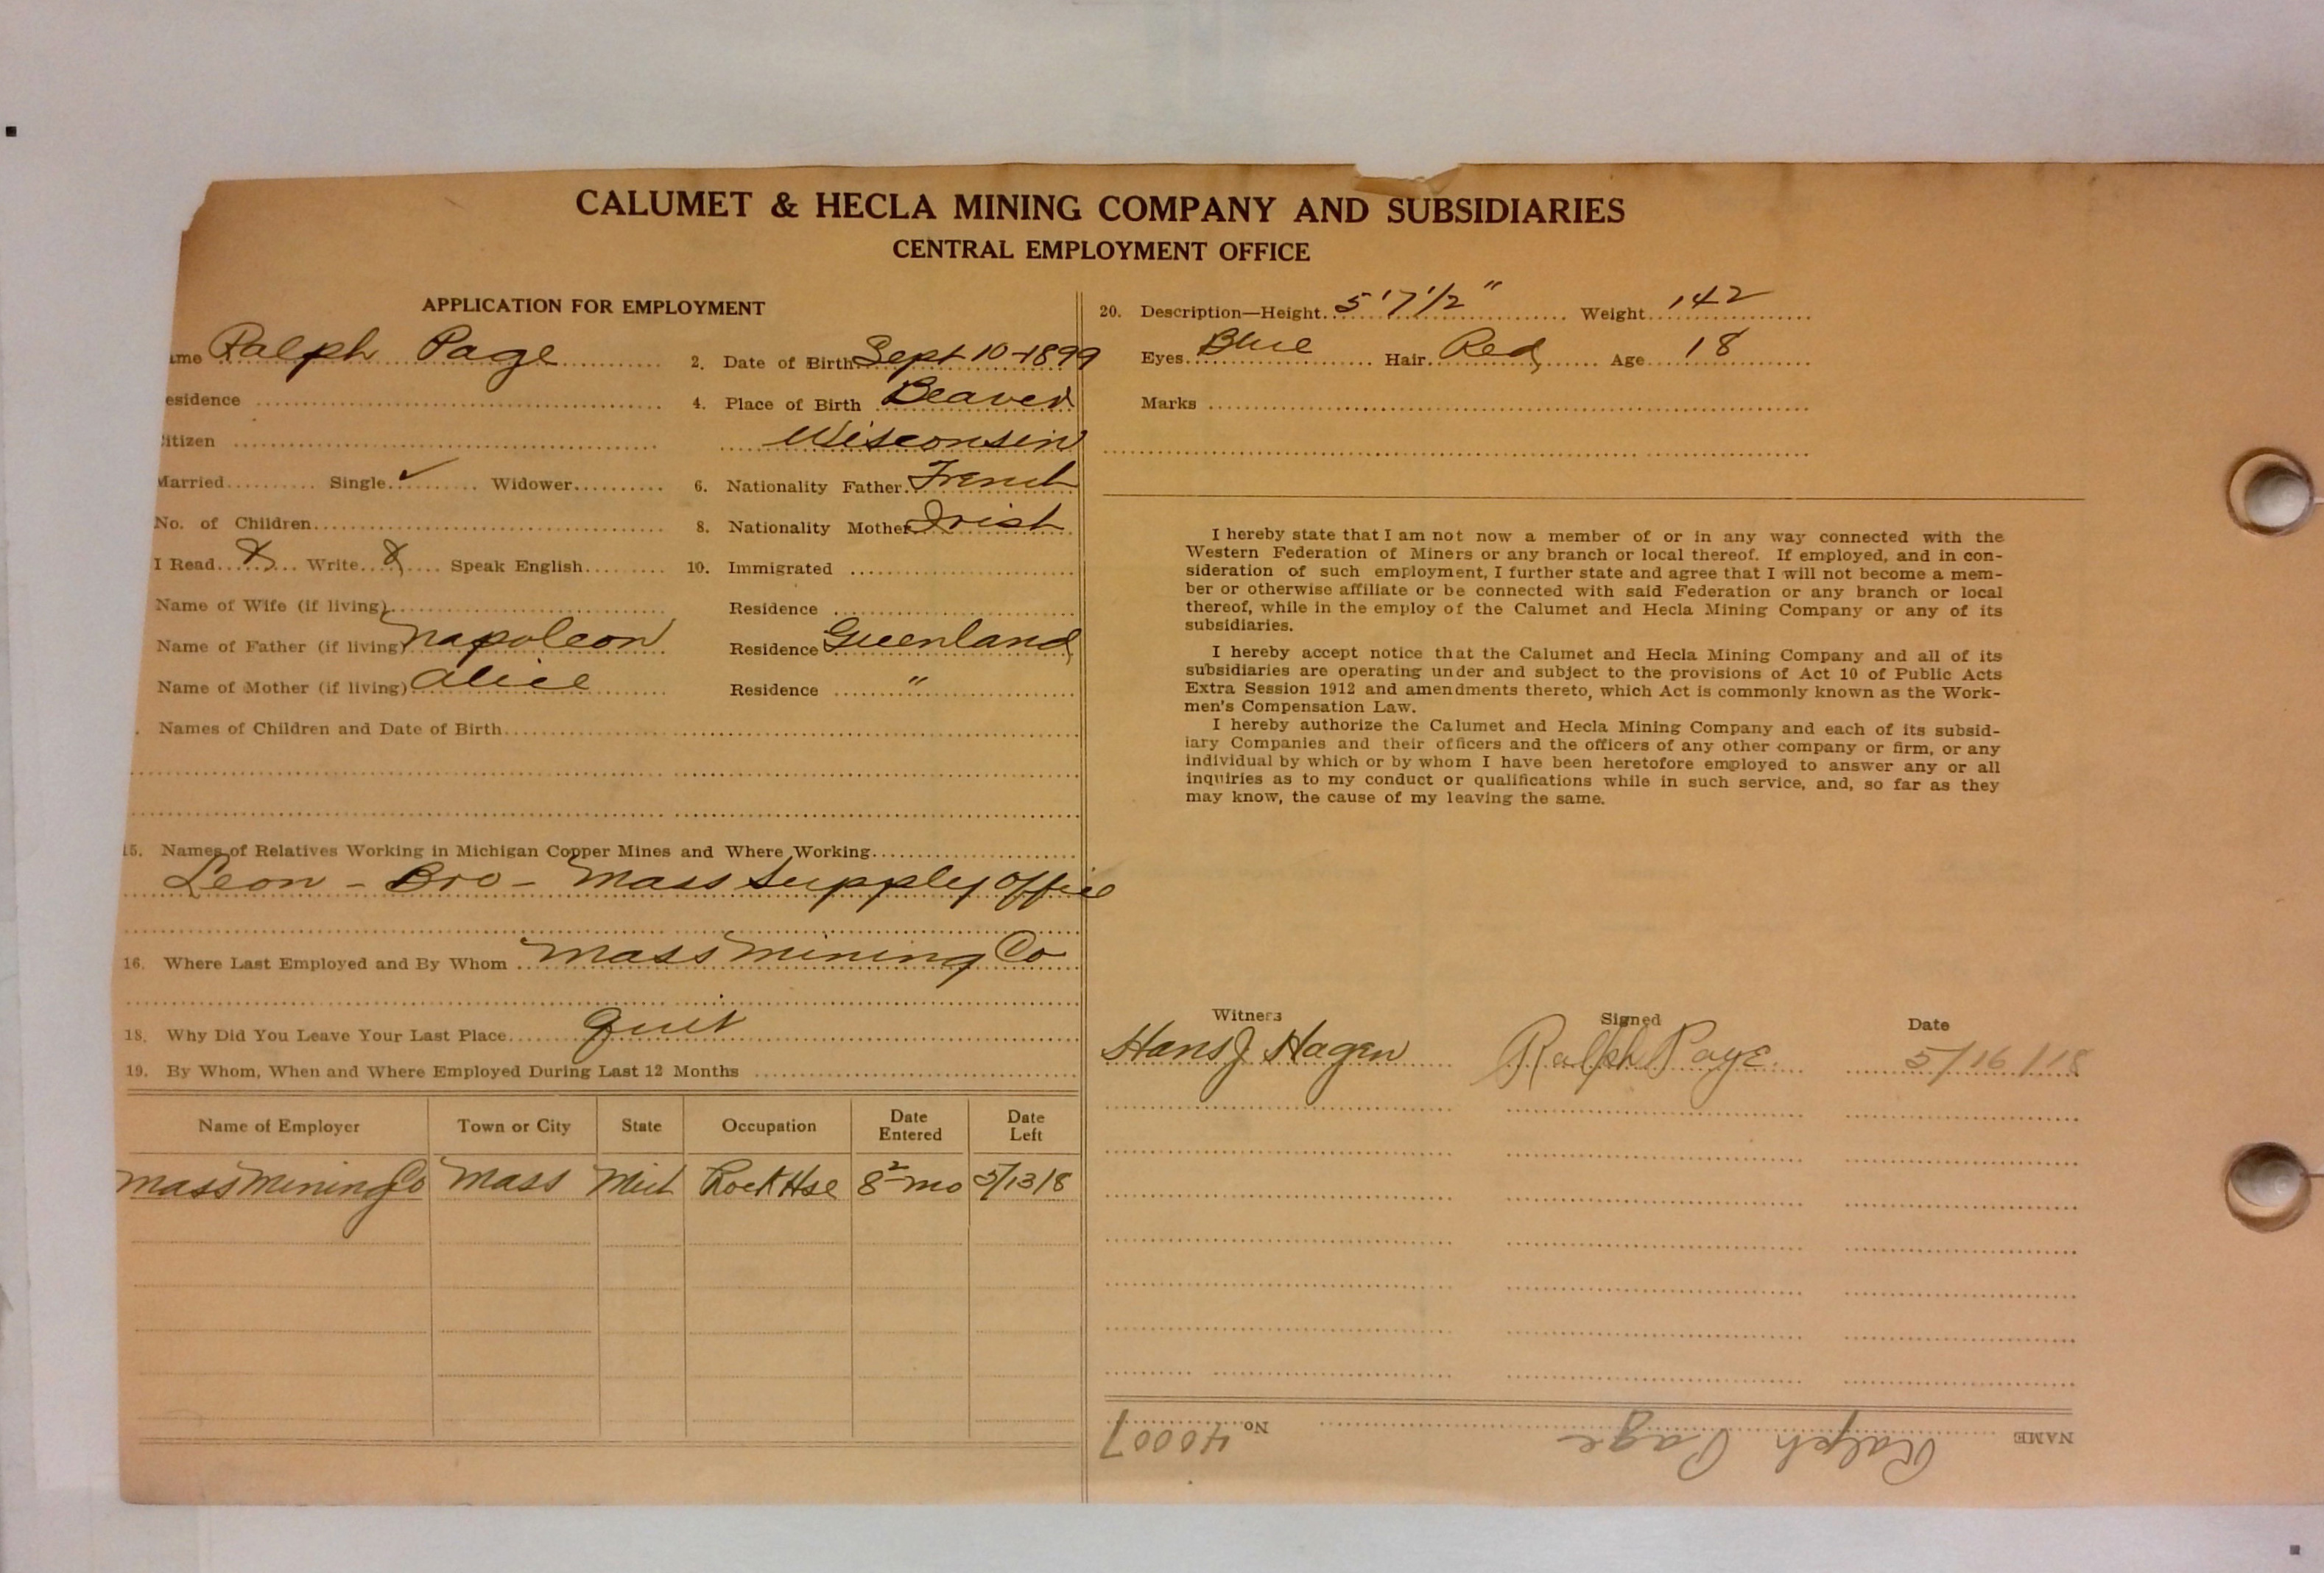 CALUMET & HECLA MINING COMPANY AND SUBSIDIARIES
CENTRAL EMPLOYMENT OFFICE
APPLICATION FOR EMPLOYMENT
ame Ralph Page 2. Date of Birth Sept 10-1899
esidence 4. Place of Birth Beaver
itizen Wisconsin
Married Single ✓ Widower 6. Nationality Father French
No. of Children 8. Nationality Mother Irish
I Read Write Speak English 10. Immigrated
Name of Wife (if living) Residence
Name of Father (if living) Napoleon Residence Greenland
Name of Mother (if living) Alice Residence "
Names of Children and Date of Birth
15. Names of Relatives Working in Michigan Copper Mines and Where Working
Leon - Bro - Mass Supply Office
16. Where Last Employed and By Whom Mass Mining Co
18. Why Did You Leave Your Last Place quit
19. By Whom, When and Where Employed During Last 12 Months
Name of Employer Town or City State Occupation Date Entered Date Left
Mass Mining Co Mass Mich Rock Hse 8 2 mo 5/13/8
20. Description—Height 5'7 1/2" Weight 142
Eyes Blue Hair Red Age 18
Marks
I hereby state that I am not now a member of or in any way connected with the
Western Federation of Miners or any branch or local thereof. If employed, and in con-
sideration of such employment, I further state and agree that I will not become a mem-
ber or otherwise affiliate or be connected with said Federation or any branch or local
thereof, while in the employ of the Calumet and Hecla Mining Company or any of its
subsidiaries.
I hereby accept notice that the Calumet and Hecla Mining Company and all of its
subsidiaries are operating under and subject to the provisions of Act 10 of Public Acts
Extra Session 1912 and amendments thereto, which Act is commonly known as the Work-
men's Compensation Law.
I hereby authorize the Calumet and Hecla Mining Company and each of its subsid-
iary Companies and their officers and the officers of any other company or firm, or any
individual by which or by whom I have been heretofore employed to answer any or all
inquiries as to my conduct or qualifications while in such service, and, so far as they
may know, the cause of my leaving the same.
Witness Signed Date
Hans J Hagen Ralph Page 5/16/18
NAME Ralph Page No 40007